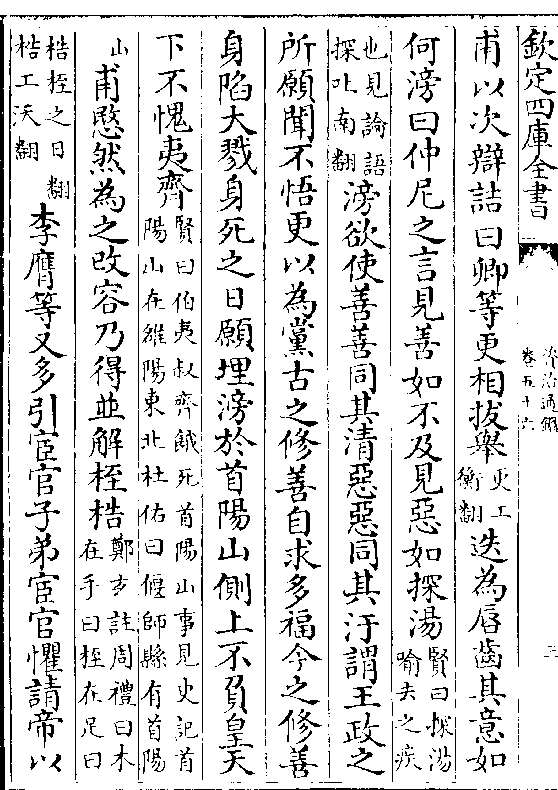 欽定四庫全書
資治通鑑
卷五十六
三
甫以次辯詰曰卿等更相拔舉更工衡翻迭為唇齒其意如
何滂曰仲尼之言見善如不及見惡如探湯賢曰探湯喻去之疾
也見論語探吐南翻滂欲使善善同其清惡惡同其汙謂王政之
所願聞不悟更以為黨古之修善自求多福今之修善
身陷大戮身死之日願埋滂於首陽山側上不負皇天
下不愧夷齊賢曰伯夷叔齊餓死首陽山事見史記首陽山在雒陽東北杜佑曰偃師縣有首陽
山甫愍然為之改容乃得並解桎梏鄭玄註周禮曰木在手曰桎在足曰
梏桎之日翻梏工沃翻李膺等又多引宦官子弟宦官懼請帝以